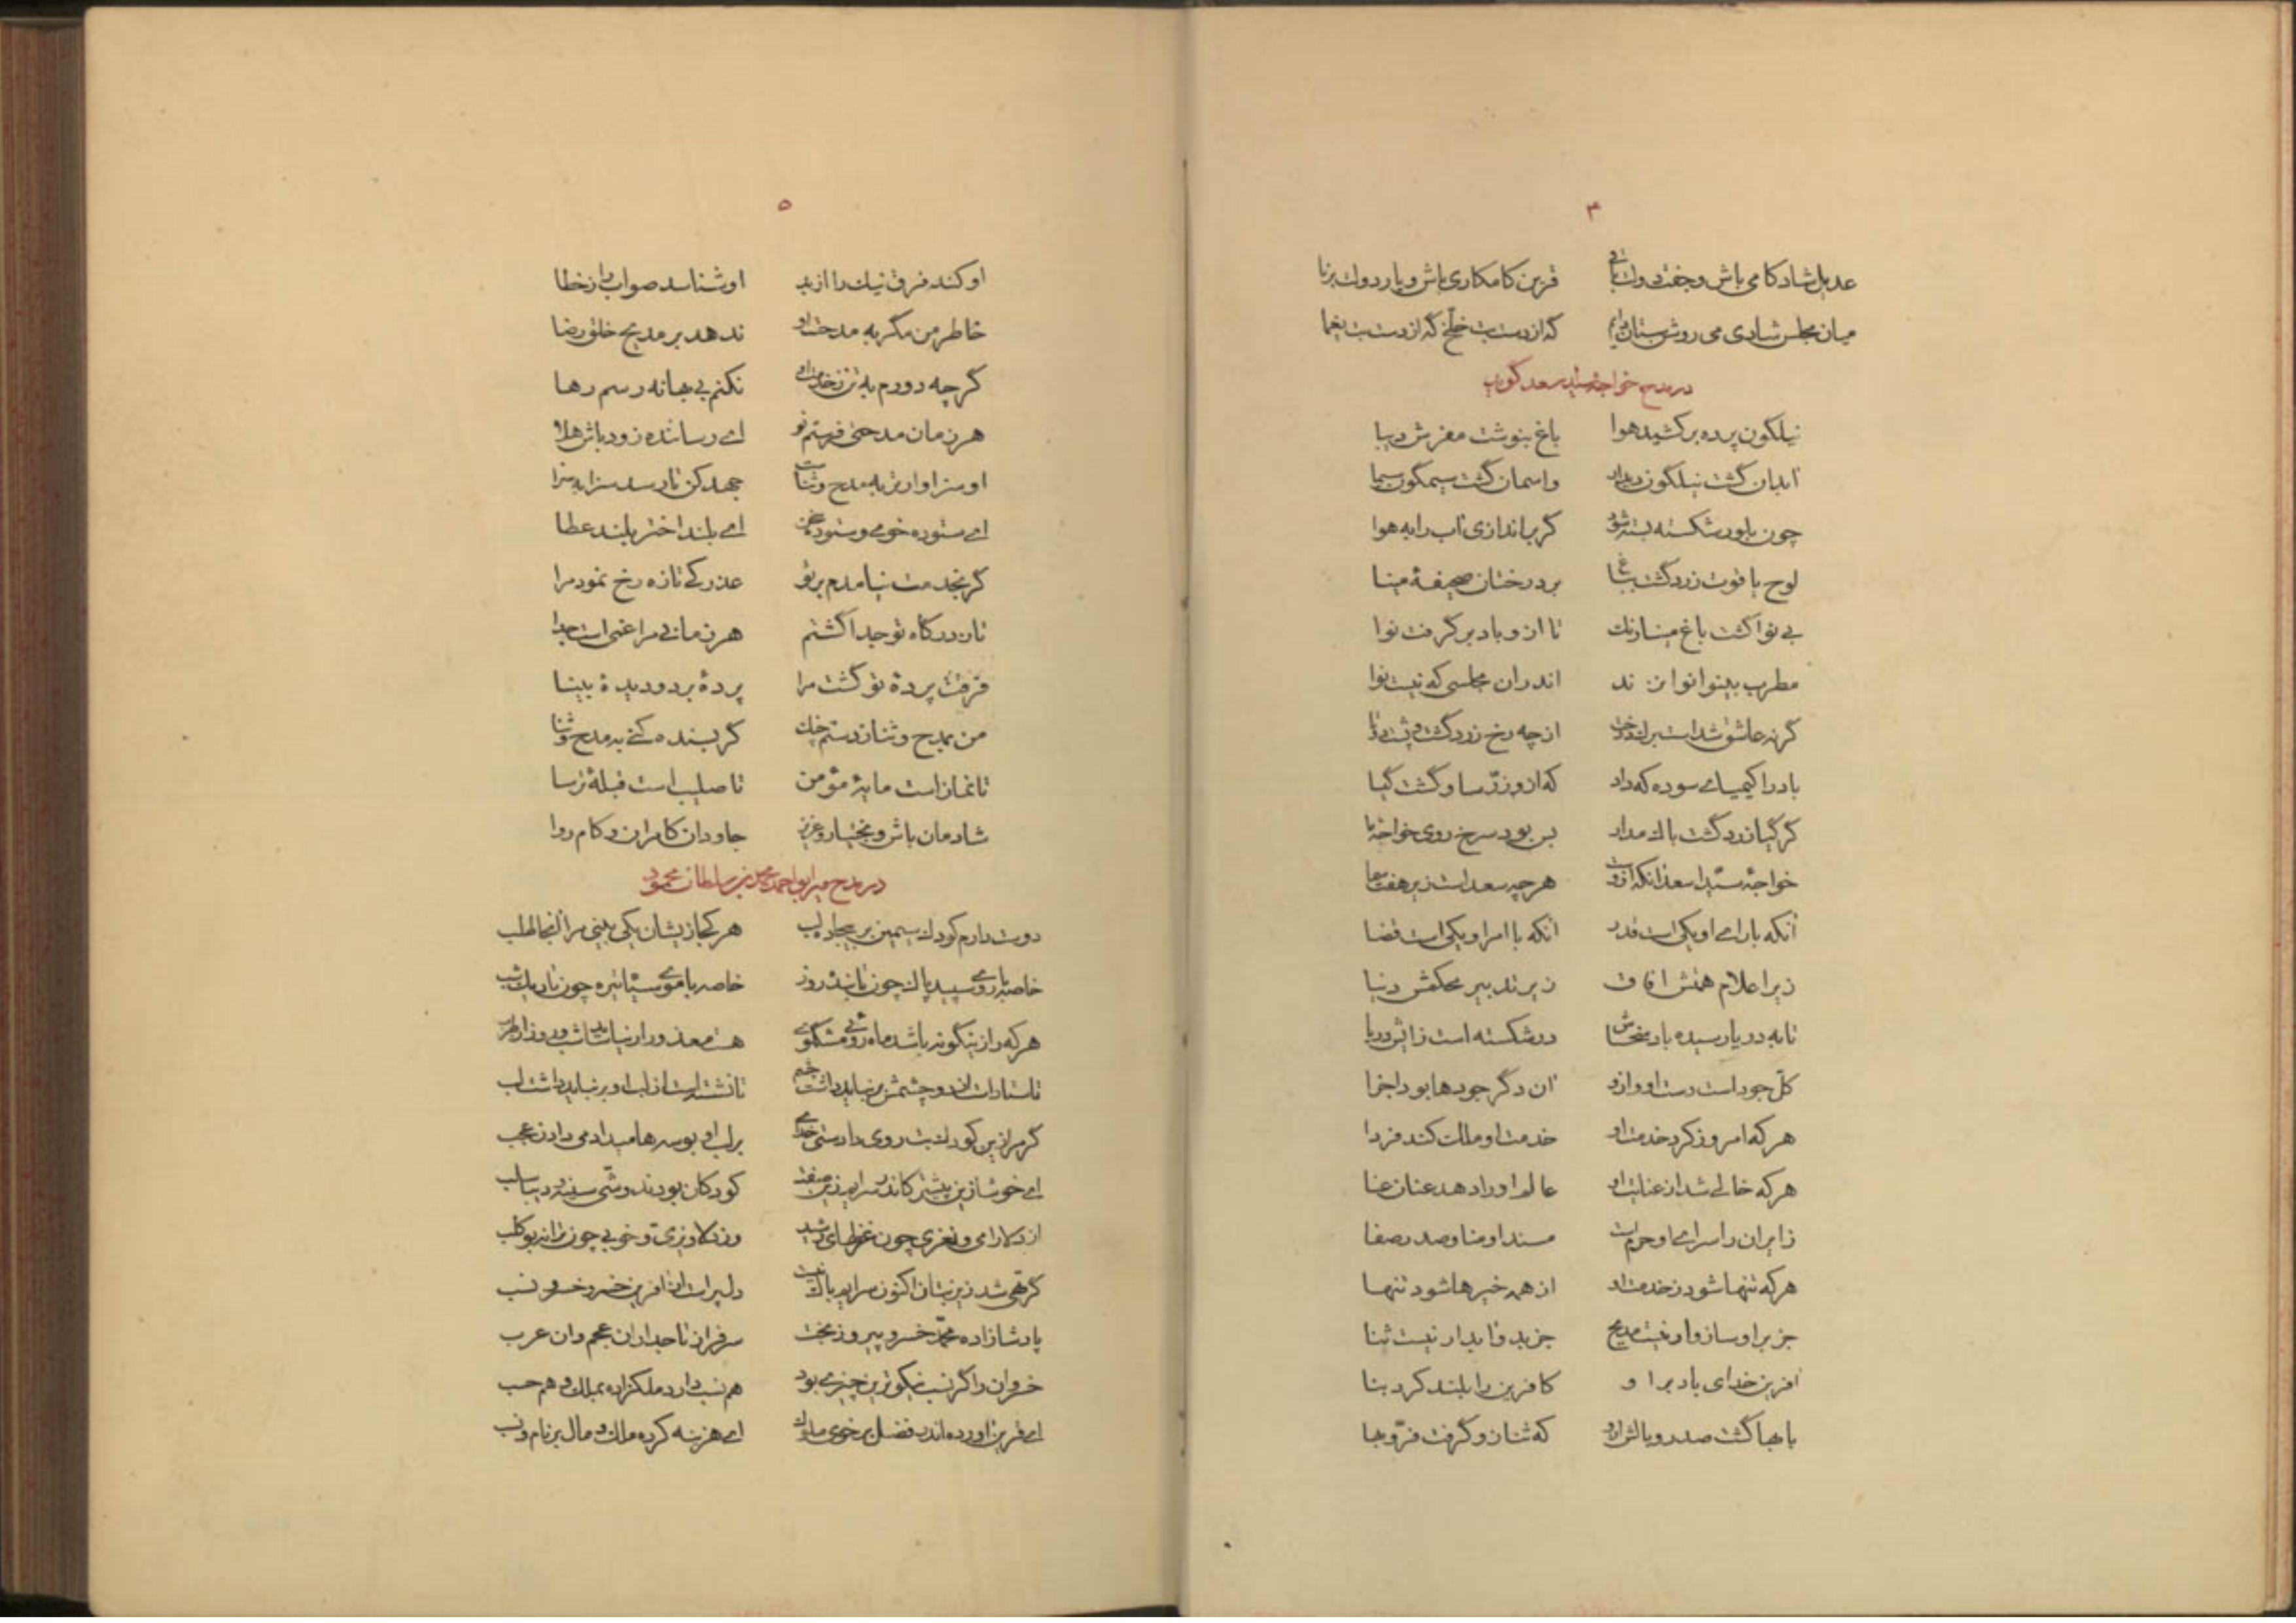 ۴
عدیل شادکامی باش و جفت دولت باقی قرین کامکاری باش و یار دولت برنا
میان مجلس شادی می روشن ستان دایم که از دست بت خلخ که از دست بت یغما
در مدح خواجه سید اسعد گوید
نیلگون پرده برکشید هوا باغ بنوشت مفرش دیبا
آبدان گشت نیلگون دیدار واسمان گشت سیمگون سیما
چون بلور شکسته بسته شود گر براندازی آب را به هوا
لوح یاقوت زرد گشت بباغ بر درختان صحیفهٔ مینا
بی نوا گشت باغ مینا رنگ تا از و باد برگرفت نوا
مطرب بینوا نوا نزند اندران مجلسی که نیست نوا
گرنه عاشق شداست برگ درخت از چه رخ زرد گشت و پشت دوتا
باد را کیمیای سوده که داد که ازو زرّ ساو گشت گیا
گر گیا زرد گشت باک مدار بس بود سرخ روی خواجهٔ ما
خواجهٔ سیّد اسعد آنکه ازوست هرچه سعد است زیر هفت سما
آنکه با رای او یکی است قدر آنکه با امر او یکی است قضا
زیر اعلام همتش آفاق زیر تدبیر محکمش دنیا
تا به دریا رسیده باد سخاش در شکسته است زایش دریا
کلّ جود است دست او و ازو آن دگر جودها بود اجزا
هرکه امروز کرد خدمت او خدمت او ملک کند فردا
هرکه خالی شد از عنایت او عالم او را دهد عنان عنا
زایران را سرای او حرم است مسند او منا و صدر صفا
هرکه تنها شود ز خدمت او از همه خیرها شود تنها
جز برو سازوار نیست مدیح جز بدو پایدار نیست ثنا
آفرین خدای باد برا و کافرین را بلند کرد بنا
با بها گشت صدر و بالش ازو که ثنا زو گرفت فرّ و بها
۵
او کند فرق نیک را از بد او شناسد صواب را ز خطا
خاطر من مگر به مدحت او ندهد بر مدیح خلق رضا
گرچه دورم به تن ز خدمت او نکنم بی بهانه رسم رها
هر زمان مدحتی فرستم نو ای رساننده زود باش هلا
او سزاوارتر به مدح و ثناست جهد کن تا رسد سزا بسزا
ای ستوده خوی و ستوده سخن ای بلند اختر بلند عطا
گر بخدمت نیامدم بر تو عذرکی تازه رخ نمود مرا
تا ز درگاه تو جدا گشتم هر زمانی مرا غمی است جدا
فرقت پردهٔ تو گشت مرا پردهٔ بر دو دیدهٔ بینا
من بمدح و ثنا زدستم چنگ گر بسنده کنی به مدح و ثنا
تا نماز است مایهٔ مؤمن تا صلیب است قبلهٔ ترسا
شادمان باش و بختیار و عزیز جاودان کامران و کام روا
در مدح میر ابو احمد محمد بن سلطان محمود
دوست دارم کودک سیمین بر بیجاده لب هر کجا زیشان یکی بینی مرا آنجا طلب
خاصه با روی سپید پاک چون تابنده روز خاصه با موی سیاه تیره چون تاریک شب
هرکه را زینگونه باشد ماه روئی مشکموی هست معذور ار نیاساید شب و روز از طرب
تا ستاد است از دو چشمش من نباید داشت چشم تا نشسته است از لب او بر نباید داشت لب
گر مرا زین کودک بت روی دادستی خدای بر لب او بوسه ها میدادمی دادن عجب
ای خوشا زین پیشتر کاندر سرایم زین صفت کودکان بودند و شی سینه و دیبا سلب
از دلارامی و نغزی چون غزلهای شهید وز دلاویزی و خوبی چون ترانه بو طلب
گر تهی شد زین بتان اکنون سرایم باک نیست دل پر است از آفرین خسرو خسرو نسب
پادشازاده محمّد خسرو پیروز بخت سرفراز تاجداران عجم وان عرب
خسروان را گر نسب نیکوترین چیزی بود هم نسب دارد ملکزاده بملک و هم حسب
ای قرین آورده اندر فضل بر خوی ملوک ای هزینه کرده ملک و مال بر نام و نسب